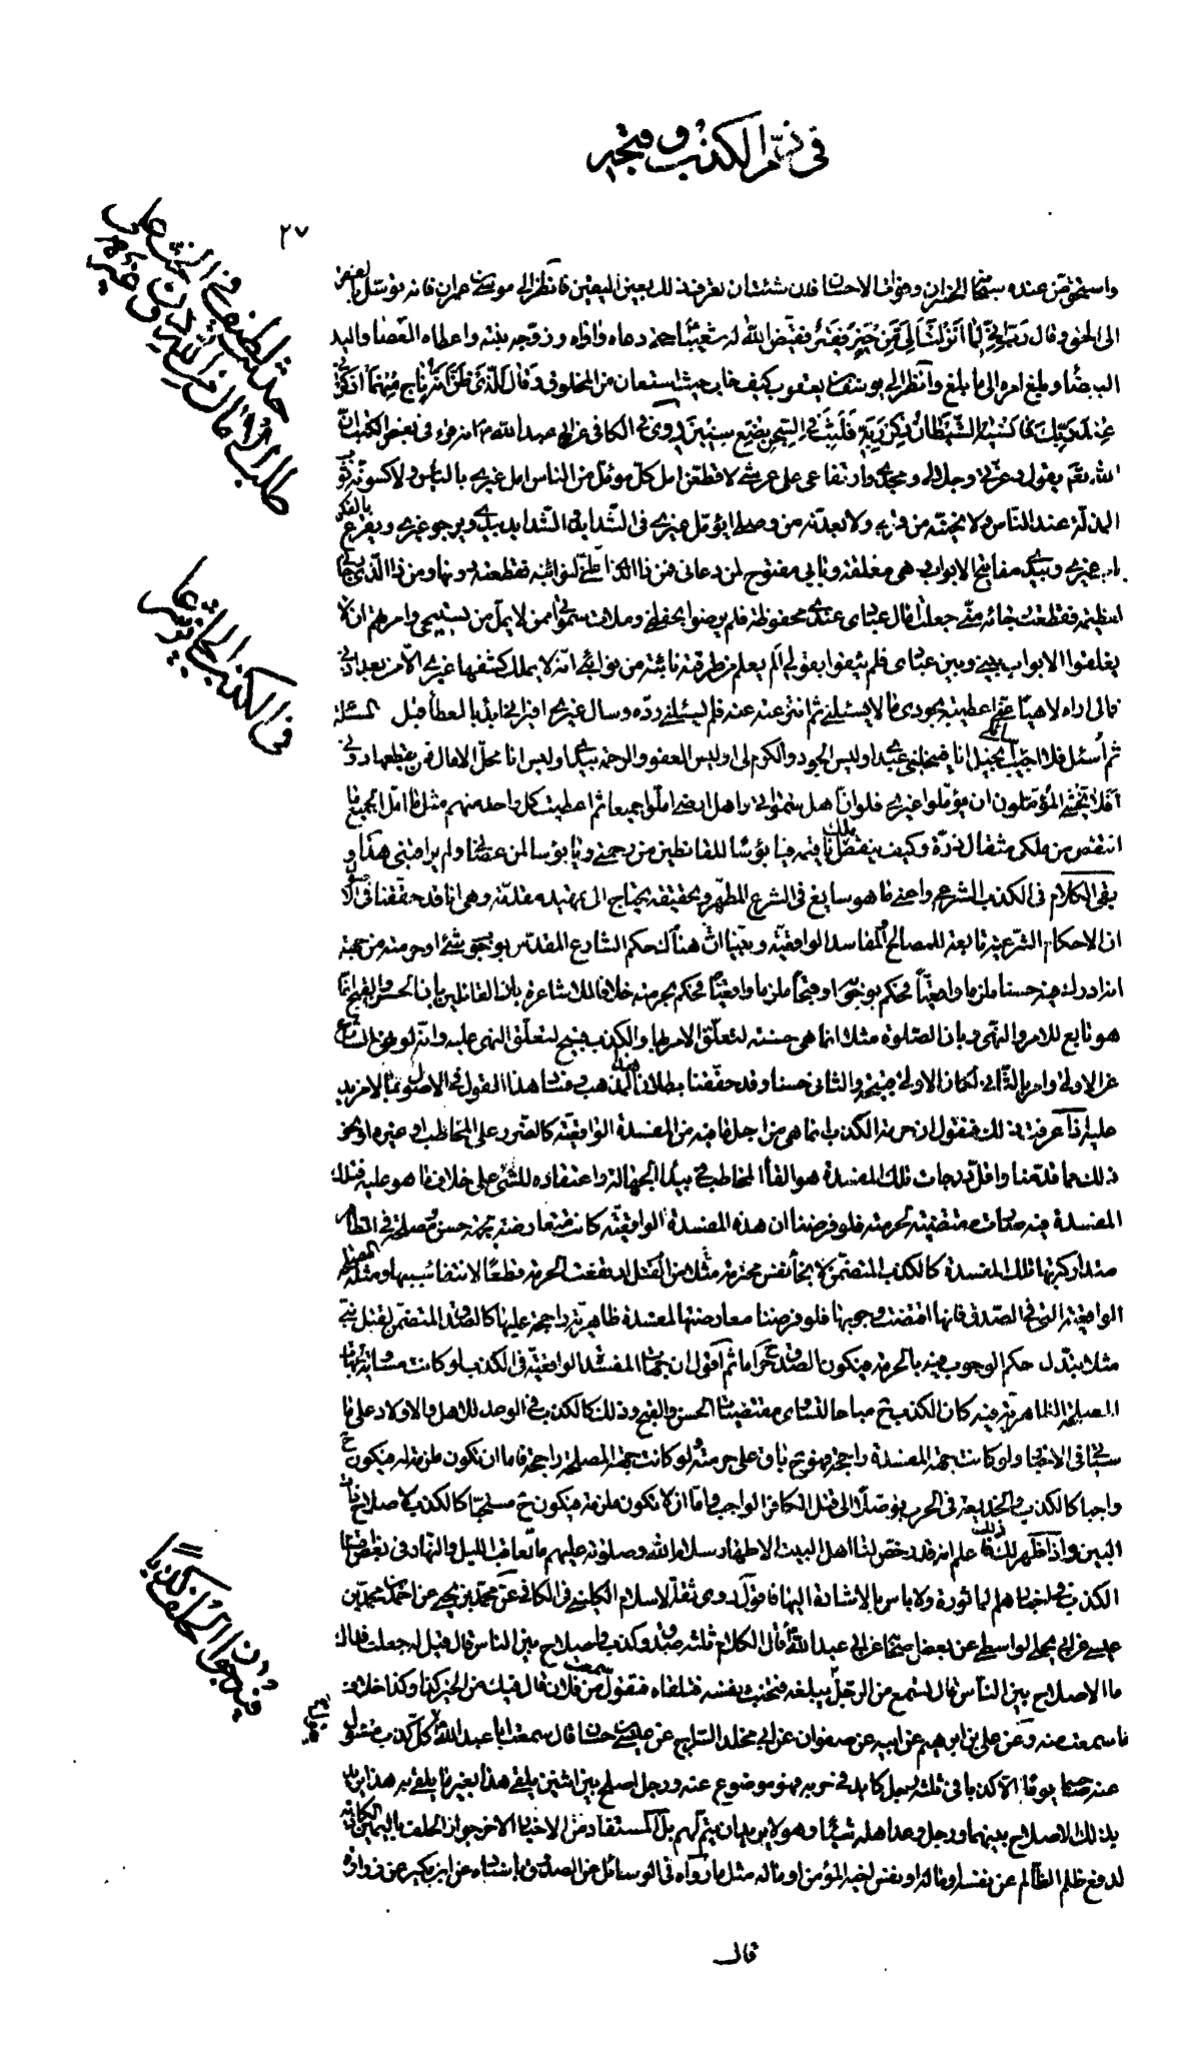 في ذم الكذب و قبحه
٢٧
حديث لطيف في الحث على
طلب الآمال من الله دون غيره
واستحوض عنده سبقتما الخيران وضواف الاحسان فان شئت ان تعرف ذلك بعين اليقين فانظر الى موسى بن عمران فانه توسل بالعجز
الى الحق وقال رب اني لما انزلت الي من خير فقير فقيض الله له شعيبا حتى دعاه واواه وزوجه بنته واعطاه العصا واليد
البيضا وبلغ امره الى ما بلغ وانظر الى يوسف بن يعقوب كيف خاب حيث استعان من المخلوق وقال للذي ظن انه ناج منهما اذكرني
عند ربك فانسيه الشيطان ذكر ربه فلبث في السجن بضع سنين روى في الكافي عن ابي عبد الله ع انه قرء في بعض الكتب ان
الله تعم يقول وعزتي وجلالي ومجدي وارتفاعي على عرشي لاقطعن امل كل مؤمل من الناس امل غيري بالياس ولاكسونه ثوب
المذلة عند الناس ولانحينه من قربي ولابعدنه من وصلي ايؤمل غيري في الشدايد والشدايد بيدي ويرجو غيري ويقرع بالفكر
باب غيري وبيدي مفاتيح الابواب هي مغلقة وبابي مفتوح لمن دعاني فمن ذا الذي املني لنوائبه فقطعته دونها ومن ذا الذي رجاني
لعظيمة فقطعت رجائه مني جعلت امال عبادي عندي محفوظة فلم يرضوا بحفظي وملات سمواتي ممن لا يمل من تسبيحي وامرتهم ان لا
يغلقوا الابواب بيني وبين عبادي فلم يثقوا بقولي الم يعلم من طرقته نائبة من نوائبي انه لا يملك كشفها غيري الا من بعد اذني
فمالي اراه لاهيا عني اعطيته بجودي ما لا يسئلني ثم انتزعته عنه فلم يسئلني رده وسال غيري افيراني ابدا بالعطا قبل المسئلة
ثم اسئل فلا اجيب سائلي ابخيل انا فيبخلني عبدي اوليس الجود والكرم لي اوليس العفو والرحمة بيدي اوليس انا محل الامال فمن يقطعها دوني
افلا يخشى المؤملون ان يؤملوا غيري فلو ان اهل سمواتي واهل ارضي املوا جميعا ثم اعطيت كل واحد منهم مثل ما امل الجميع ما
انتقص من ملكي مثقال ذرة وكيف ينقص ملك انا قيمه فيا بؤسا للقانطين من رحمتي ويا بؤسا لمن عصاني ولم يراقبني هذا و
بقى الكلام في الكذب الشرعي واعني ما هو سايغ في الشرع المطهر وتحقيقه يحتاج الى تمهيد مقدمة وهي انا قد حققنا في الاصول
ان الاحكام الشرعية تابعة للمصالح والمفاسد الواقعية وبينا ان هناك حكم الشارع المقدس بوجوب شئ او حرمته من جهة
انه ادرك فيه حسنا ملزما واقعيا فحكم بوجوبه او قبحا ملزما واقعيا فحكم بحرمته خلافا للاشاعرة القائلين بان الحسن والقبح انما
هو تابع للامر والنهي وبان الصلوة مثلا انما هي حسنة لتعلق الامر بها والكذب قبيح لتعلق النهي عليه وانه لو نهى الشارع
عن الاولى وامر بالثاني لكان الاولى قبيحة والثاني حسنا وقد حققنا بطلان هذا المذهب وفساد هذا القول في الاصول بما لا مزيد
عليه اذا عرفت ذلك فنقول ان حرمة الكذب انما هي من اجل ما فيه من المفسدة الواقعية كالضرر على المخاطب او غيره او نحو
ذلك مما قدمنا واقل درجات تلك المفسدة هو القاء المخاطب في بيداء الجهالة واعتقاده للشئ على خلاف ما هو عليه فتلك
المفسدة فيه صارت مقتضية لحرمته فلو فرضنا ان هذه المفسدة الواقعية كانت متعارضة بجهة حسن ومصلحة في الظاهر
متداركة بها تلك المفسدة كالكذب المتضمن لانجاء نفس محترمة مثلا من القتل لارتفعت الحرمة قطعا لانتفاء سببها ومثله المصلحة
الواقعية التي في الصدق فانها اقتضت وجوبها فلو فرضنا معارضتها لمفسدة ظاهرية راجحة عليها كالصدق المتضمن لقتل نبي
مثلا يتبدل حكم الوجوب فيه بالحرمة فيكون الصدق ح حراما ثم اقول ان جهات المفسدة الواقعية في الكذب لو كانت مساوية لجهات
المصلحة الظاهرية فيه كان الكذب ح مباحا لتساوى مقتضيات الحسن والقبح وذلك كالكذب في الوعد للاهل والاولاد على ما
سيجئ في الاخبار ولو كانت جهة المفسدة راجحة فهو ح باق على حرمته ولو كانت جهة المصلحة راجحة فاما ان تكون ملزمة له فيكون ح
واجبا كالكذب والخديعة في الحرب توصلا الى قتل الكافر الواجب واما ان لا تكون ملزمة فيكون ح مستحبا كالكذب لاصلاح ذات
البين واذا ظهر لك ذلك فاعلم انه قد رخص لنا اهل البيت الاطهار سلام الله وصلوته عليهم ما تعاقب الليل والنهار في بعض اقسام
الكذب في اخبارهم الماثورة ولا باس بالاشارة اليها فاقول روى ثقة الاسلام الكليني في الكافي عن محمد بن يحيى عن احمد بن محمد بن
عيسى عن ابي يحيى الواسطي عن بعض اصحابنا عن ابي عبد الله ع قال الكلام ثلثة صدق وكذب واصلاح بين الناس قال قيل له جعلت فداك
ما الاصلاح بين الناس قال تسمع من الرجل يبلغه فتخبث نفسه فتلقاه فتقول سمعت من فلان قال فيك من الخير كذا وكذا خلاف
ما سمعت منه وعن علي بن ابرهيم عن ابيه عن صفوان عن ابي مخلد السراج عن عيسى بن حسان قال سمعت ابا عبد الله ع كل كذب مسئول
عنه صاحبه يوما الا كذبا في ثلثة رجل كايد في حربه فهو موضوع عنه ورجل اصلح بين اثنين يلقى هذا بغير ما يلقى به هذا يريد
بذلك الاصلاح بينهما ورجل وعد اهله شيئا وهو لا يريد ان يتم لهم بل المستفاد من الاخبار الاخر جواز الحلف باليمين الكاذبة
لدفع ظلم الظالم عن نفسه او ماله او نفس اخيه المؤمن او ماله مثل ما رواه في الوسائل عن الصدوق باسناده عن ابن بكير عن زرارة
في الكذب الجائز شرعا
فيه جواز الحلف كذبا
قال